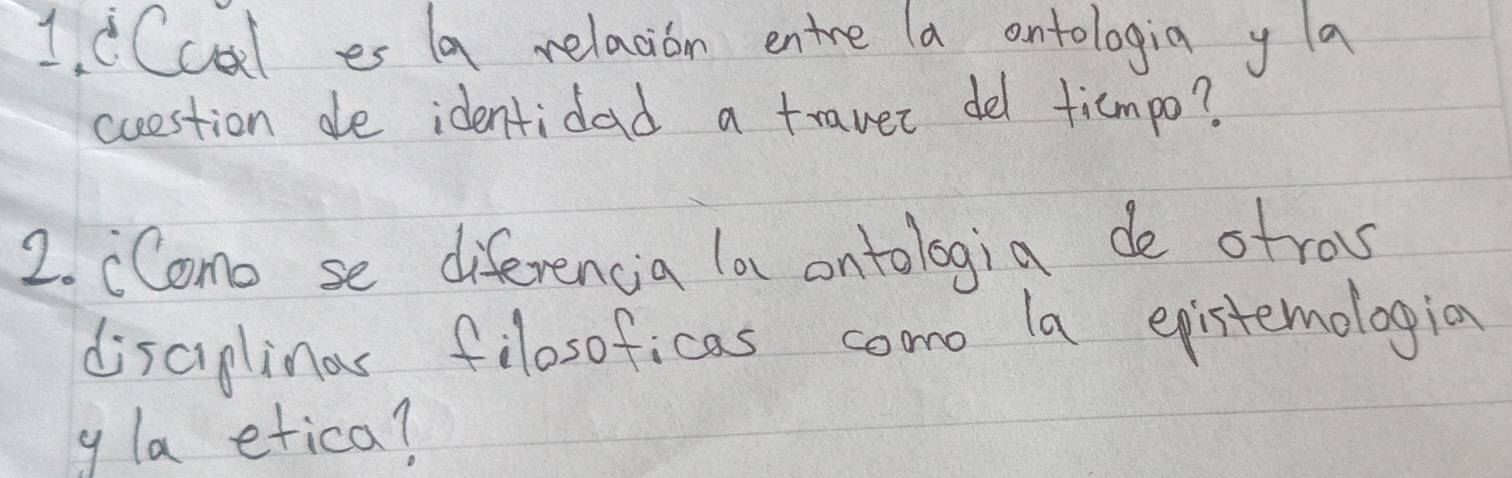 1. ¿Ccual es la relación entre la ontologia y la
cuestion de identidad a travez del tiempo?
2. ¿Como se diferencia la ontologia de otras
disciplinas filosoficas como la epistemologia
y la etica?